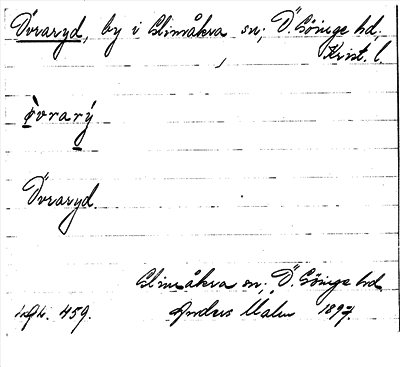 Övraryd, by i Glimåkra sn; Ö. Göinge hd;
Krist. l.
òvrarý
Övraryd.
Glimåkra sn; Ö. Göinge hd.
459. Anders Malm 1897.